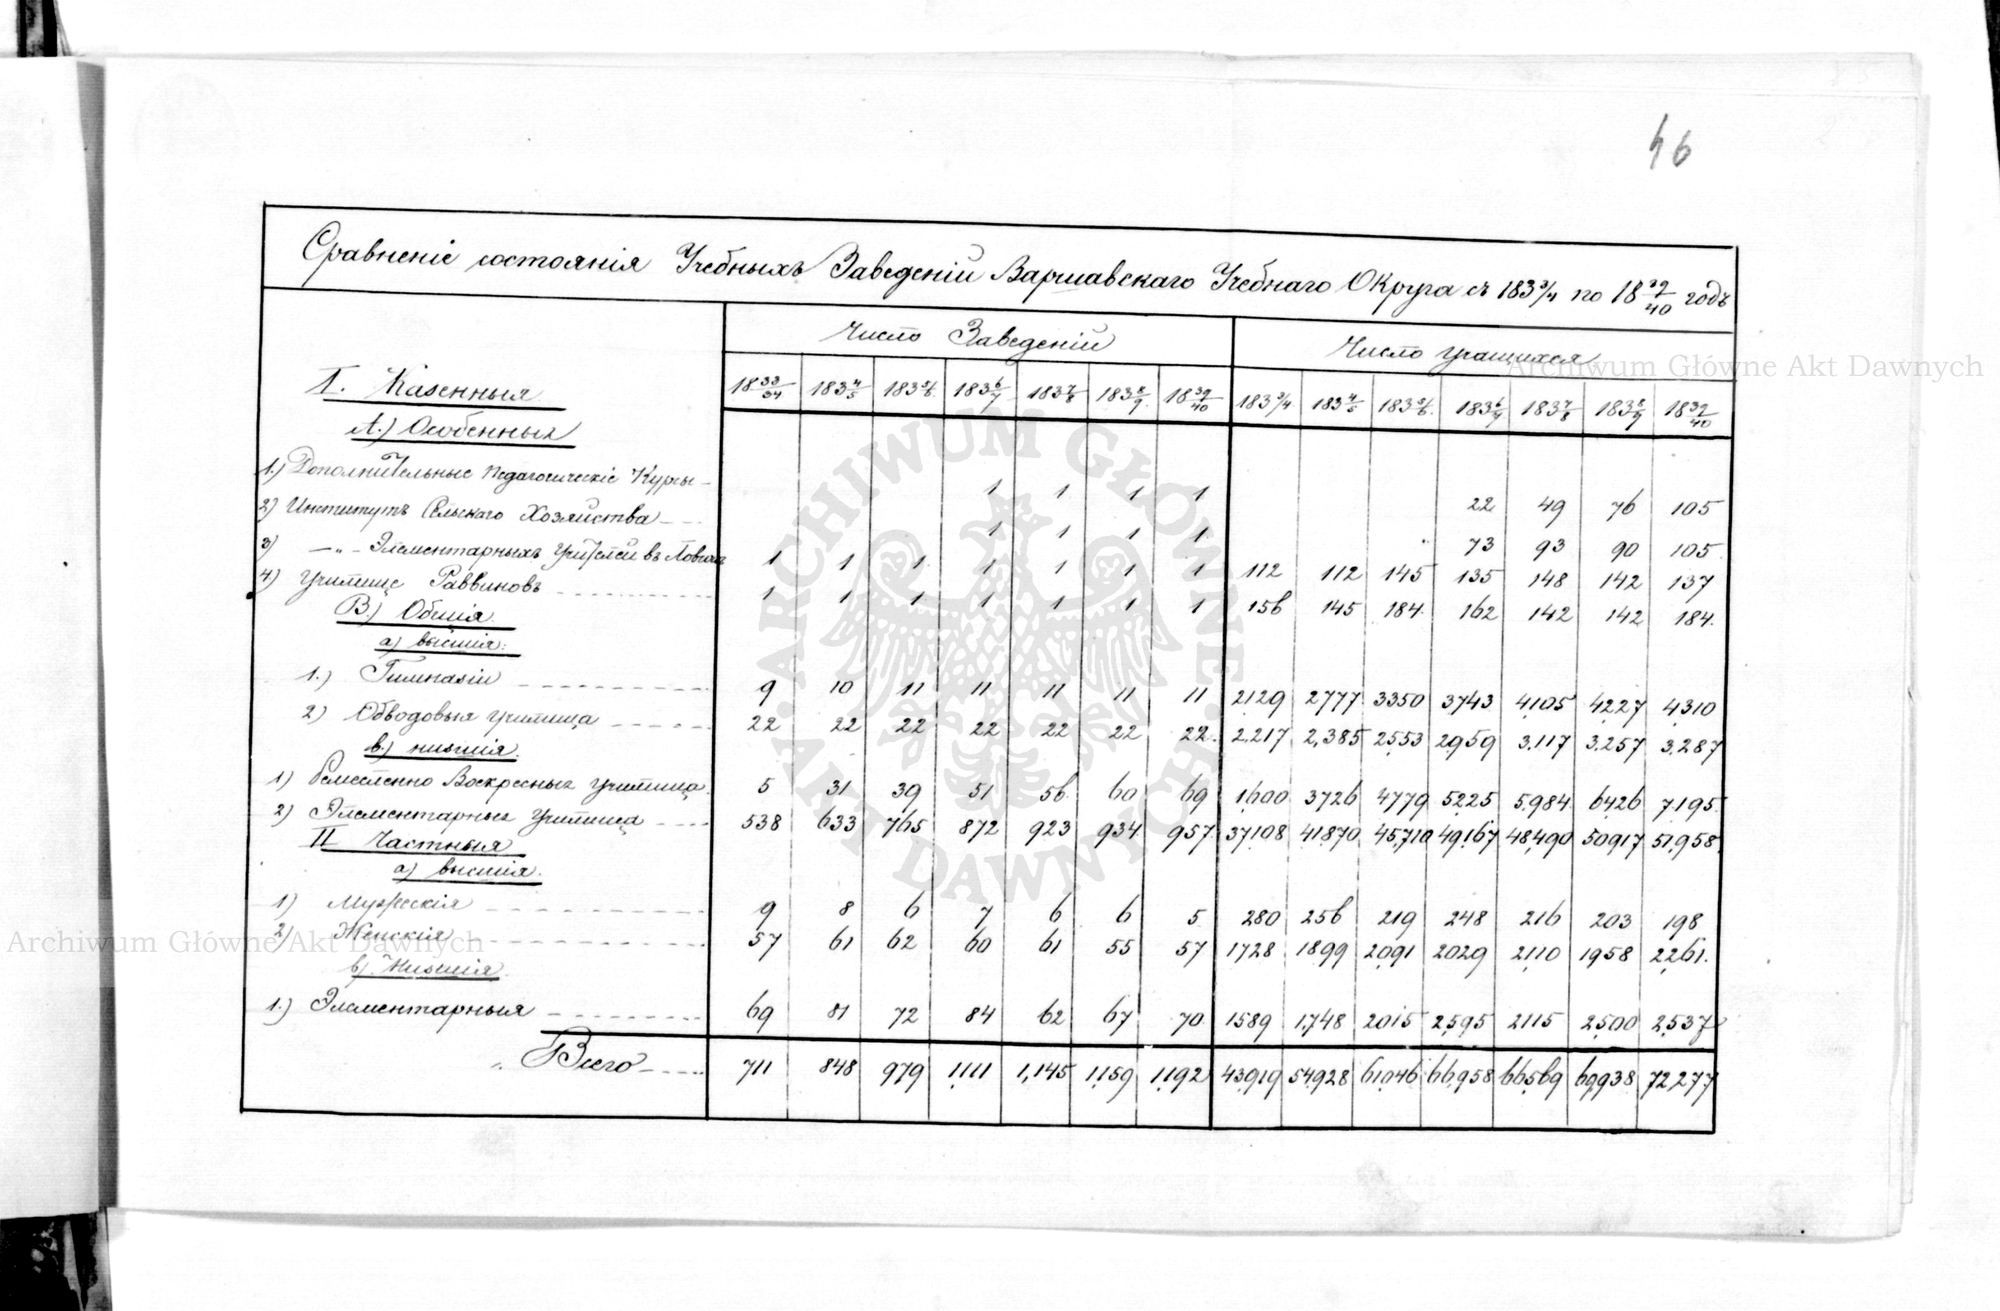 46
Сравненіе состоянія Учебныхъ Заведеній Варшавскаго Учебнаго Округа съ 183 3/4 по 18 39/40 годъ
Число Заведеній Число учащихся
I. Казенныя 18 33/34 183 4/5 183 5/6 183 6/7 183 7/8 183 8/9 18 39/40 183 3/4 183 4/5 183 5/6 183 6/7 183 7/8 183 8/9 18 39/40
А.) Особенныя
1.) Дополнительные Педагогическіе Курсы 1 1 1 1 22 49 76 105
2) Институтъ Сельскаго Хозяйства 1 1 1 1 73 93 90 105
3) —„— Элементарныхъ Учителей въ Ловичѣ 1 1 1 1 1 1 1 112 112 145 135 148 142 137
4) Училище Раввиновъ 1 1 1 1 1 1 1 156 145 184 162 142 142 184
В) Общія
а) высшія:
1.) Гимназіи 9 10 11 11 11 11 11 2129 2777 3350 3743 4,105 4,227 4,310
2) Обводовыя училища 22 22 22 22 22 22 22 2,217 2,385 2553 2959 3,117 3,257 3,287
в.) низшія.
1) Ремесленно Воскресныя училища 5 31 39 51 56 60 69 1,600 3726 4779 5225 5,984 6426 7,195
2) Элементарныя Училища 538 633 765 872 923 934 957 37,108 41,870 45,710 49,167 48,490 50917 51,958
II Частныя
а) высшія.
1) Мужескія 9 8 6 7 6 6 5 280 256 219 248 216 203 198
2) Женскія 57 61 62 60 61 55 57 1728 1899 2091 2029 2110 1958 2261
в). Низшія
1.) Элементарныя 69 81 72 84 62 67 70 1589 1,748 2015 2,595 2115 2,500 2,537
Всего 711 848 979 1,111 1,145 1,159 1,192 43,919 54,928 61,046 66,958 66,569 69,938 72,277
Archiwum Główne Akt Dawnych
Archiwum Główne Akt Dawnych
ARCHIWUM GŁÓWNE AKT DAWNYCH